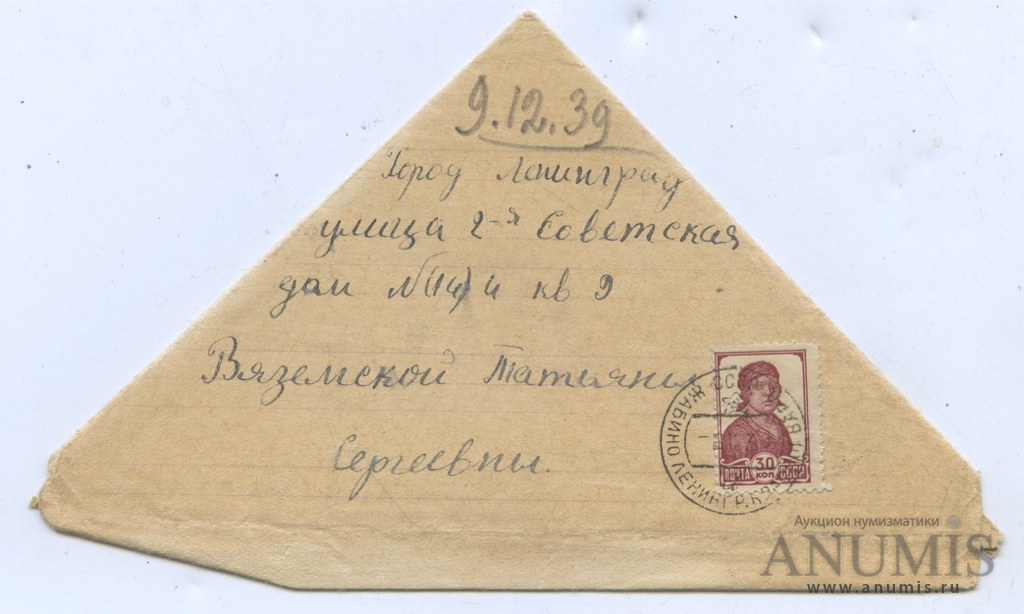 9.12.39
Город Ленинград
улица 2-я Советская
дом №14/4 кв 9
Вяземской Татияны
Сергеевны.
ПОЧТА 30 КОП СССР
ЖАБИНО ЛЕНИНГР.
Аукцион нумизматики
ANUMIS
www.anumis.ru